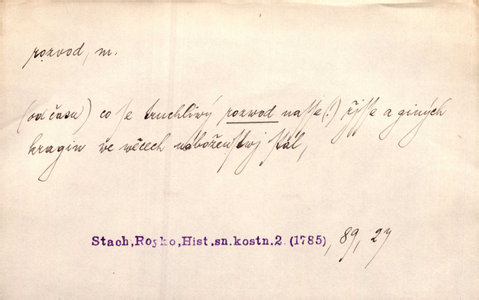 rozvod, m.
(od času) co se truchliwý rozwod nasse(!) řjsse a giných
kragin we wěcech náboženstwj stal,
Stach,Royko,Hist.sn.kostn.2.(1785), 89, 27